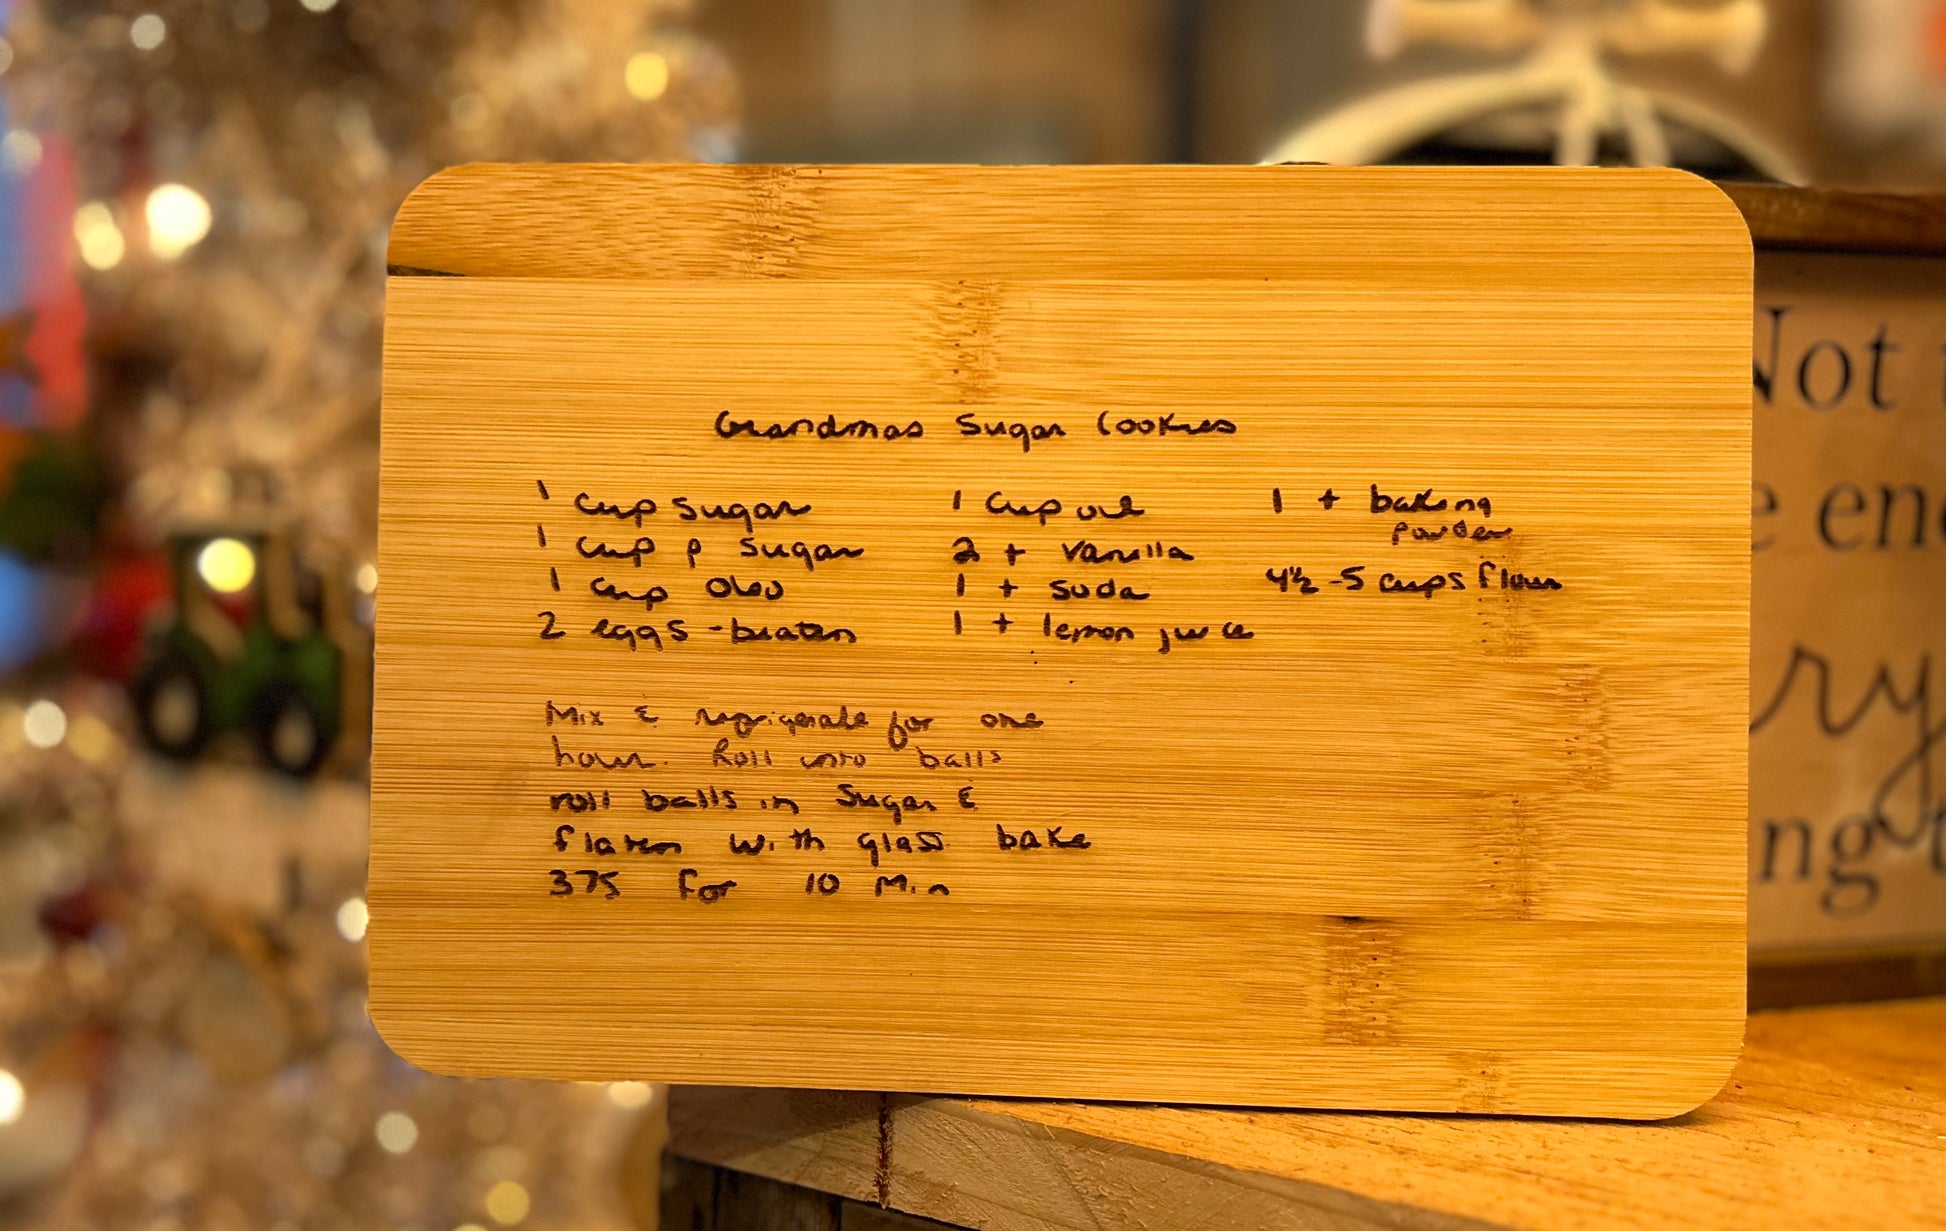 Grandmas Sugar Cookies
1 cup sugar
1 cup p sugar
1 cup oleo
2 eggs - beaten
1 cup oil
2 t vanilla
1 t soda
1 t lemon juice
1 t baking
powder
4½ - 5 cups flour
Mix & refrigerate for one
hour. Roll into balls
roll balls in sugar &
flaten with glass bake
375 for 10 Min
Not
e en
ry
ng t